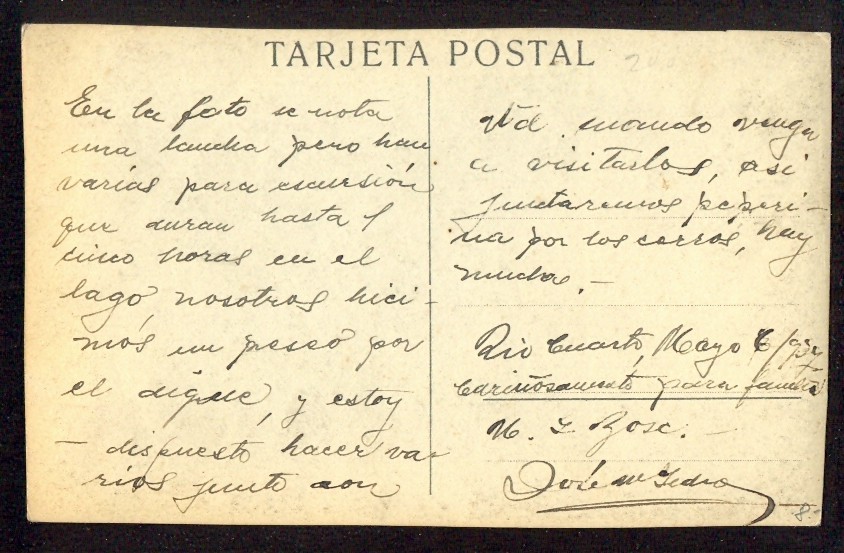 TARJETA POSTAL
En la foto se nota
una lancha pero han
varias para escursión
que duran hasta
cinco horas en el
lago, nosotros hici-
mós un paseo por
el dique, y estoy
- dispuesto hacer va-
rios junto con
Vd. cuando venga
a visitarlos, asi
juntaremos peperi-
na por los cerros, hay
mucha. -
Rio Cuarto, Mayo
Cariñosamente para familia
José
8.